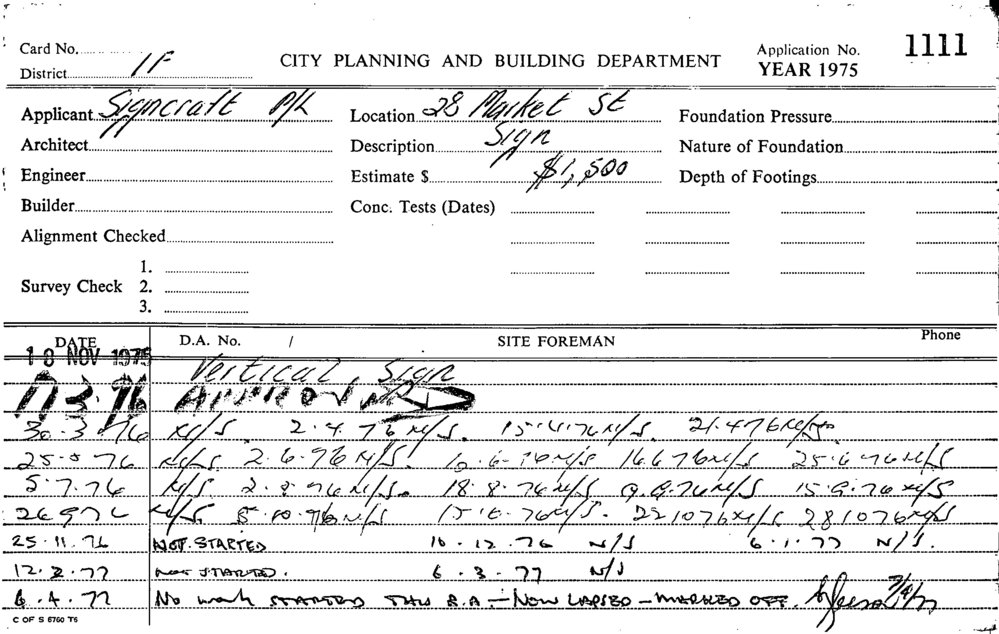 Card No.
District 1F
CITY PLANNING AND BUILDING DEPARTMENT
Application No. 1111
YEAR 1975
Applicant Signcraft P/L
Location 28 Market St
Foundation Pressure
Architect
Description Sign
Nature of Foundation
Engineer
Estimate $ $1,500
Depth of Footings
Builder
Conc. Tests (Dates)
Alignment Checked
Survey Check
1.
2.
3.
DATE D.A. No. / SITE FOREMAN Phone
18 NOV 1975 Vertical Sign
APPROVED
30.3.76 N/S 2.4.76 N/S. 15.4.76 N/S. 21.4.76 N/S
25.5.76 N/S. 2.6.76 N/S 16.6.76 N/S 25.6.76 N/S
5.7.76 N/S 2.8.76 N/S. 18.8.76 N/S 9.9.76 N/S 15.9.76 N/S
N/S. 5.10.76 N/S 15.10.76 N/S. 22.10.76 N/S 28.10.76 N/S
25.11.76 NOT. STARTED 10.12.76 N/S 6.1.77 N/S.
12.2.77 NOT STARTED. 6.3.77 N/S
6.4.77 No work STARTED THIS B.A. – NOW LAPSED – MARKED OFF. 7/4/77
C OF S 6760 T6